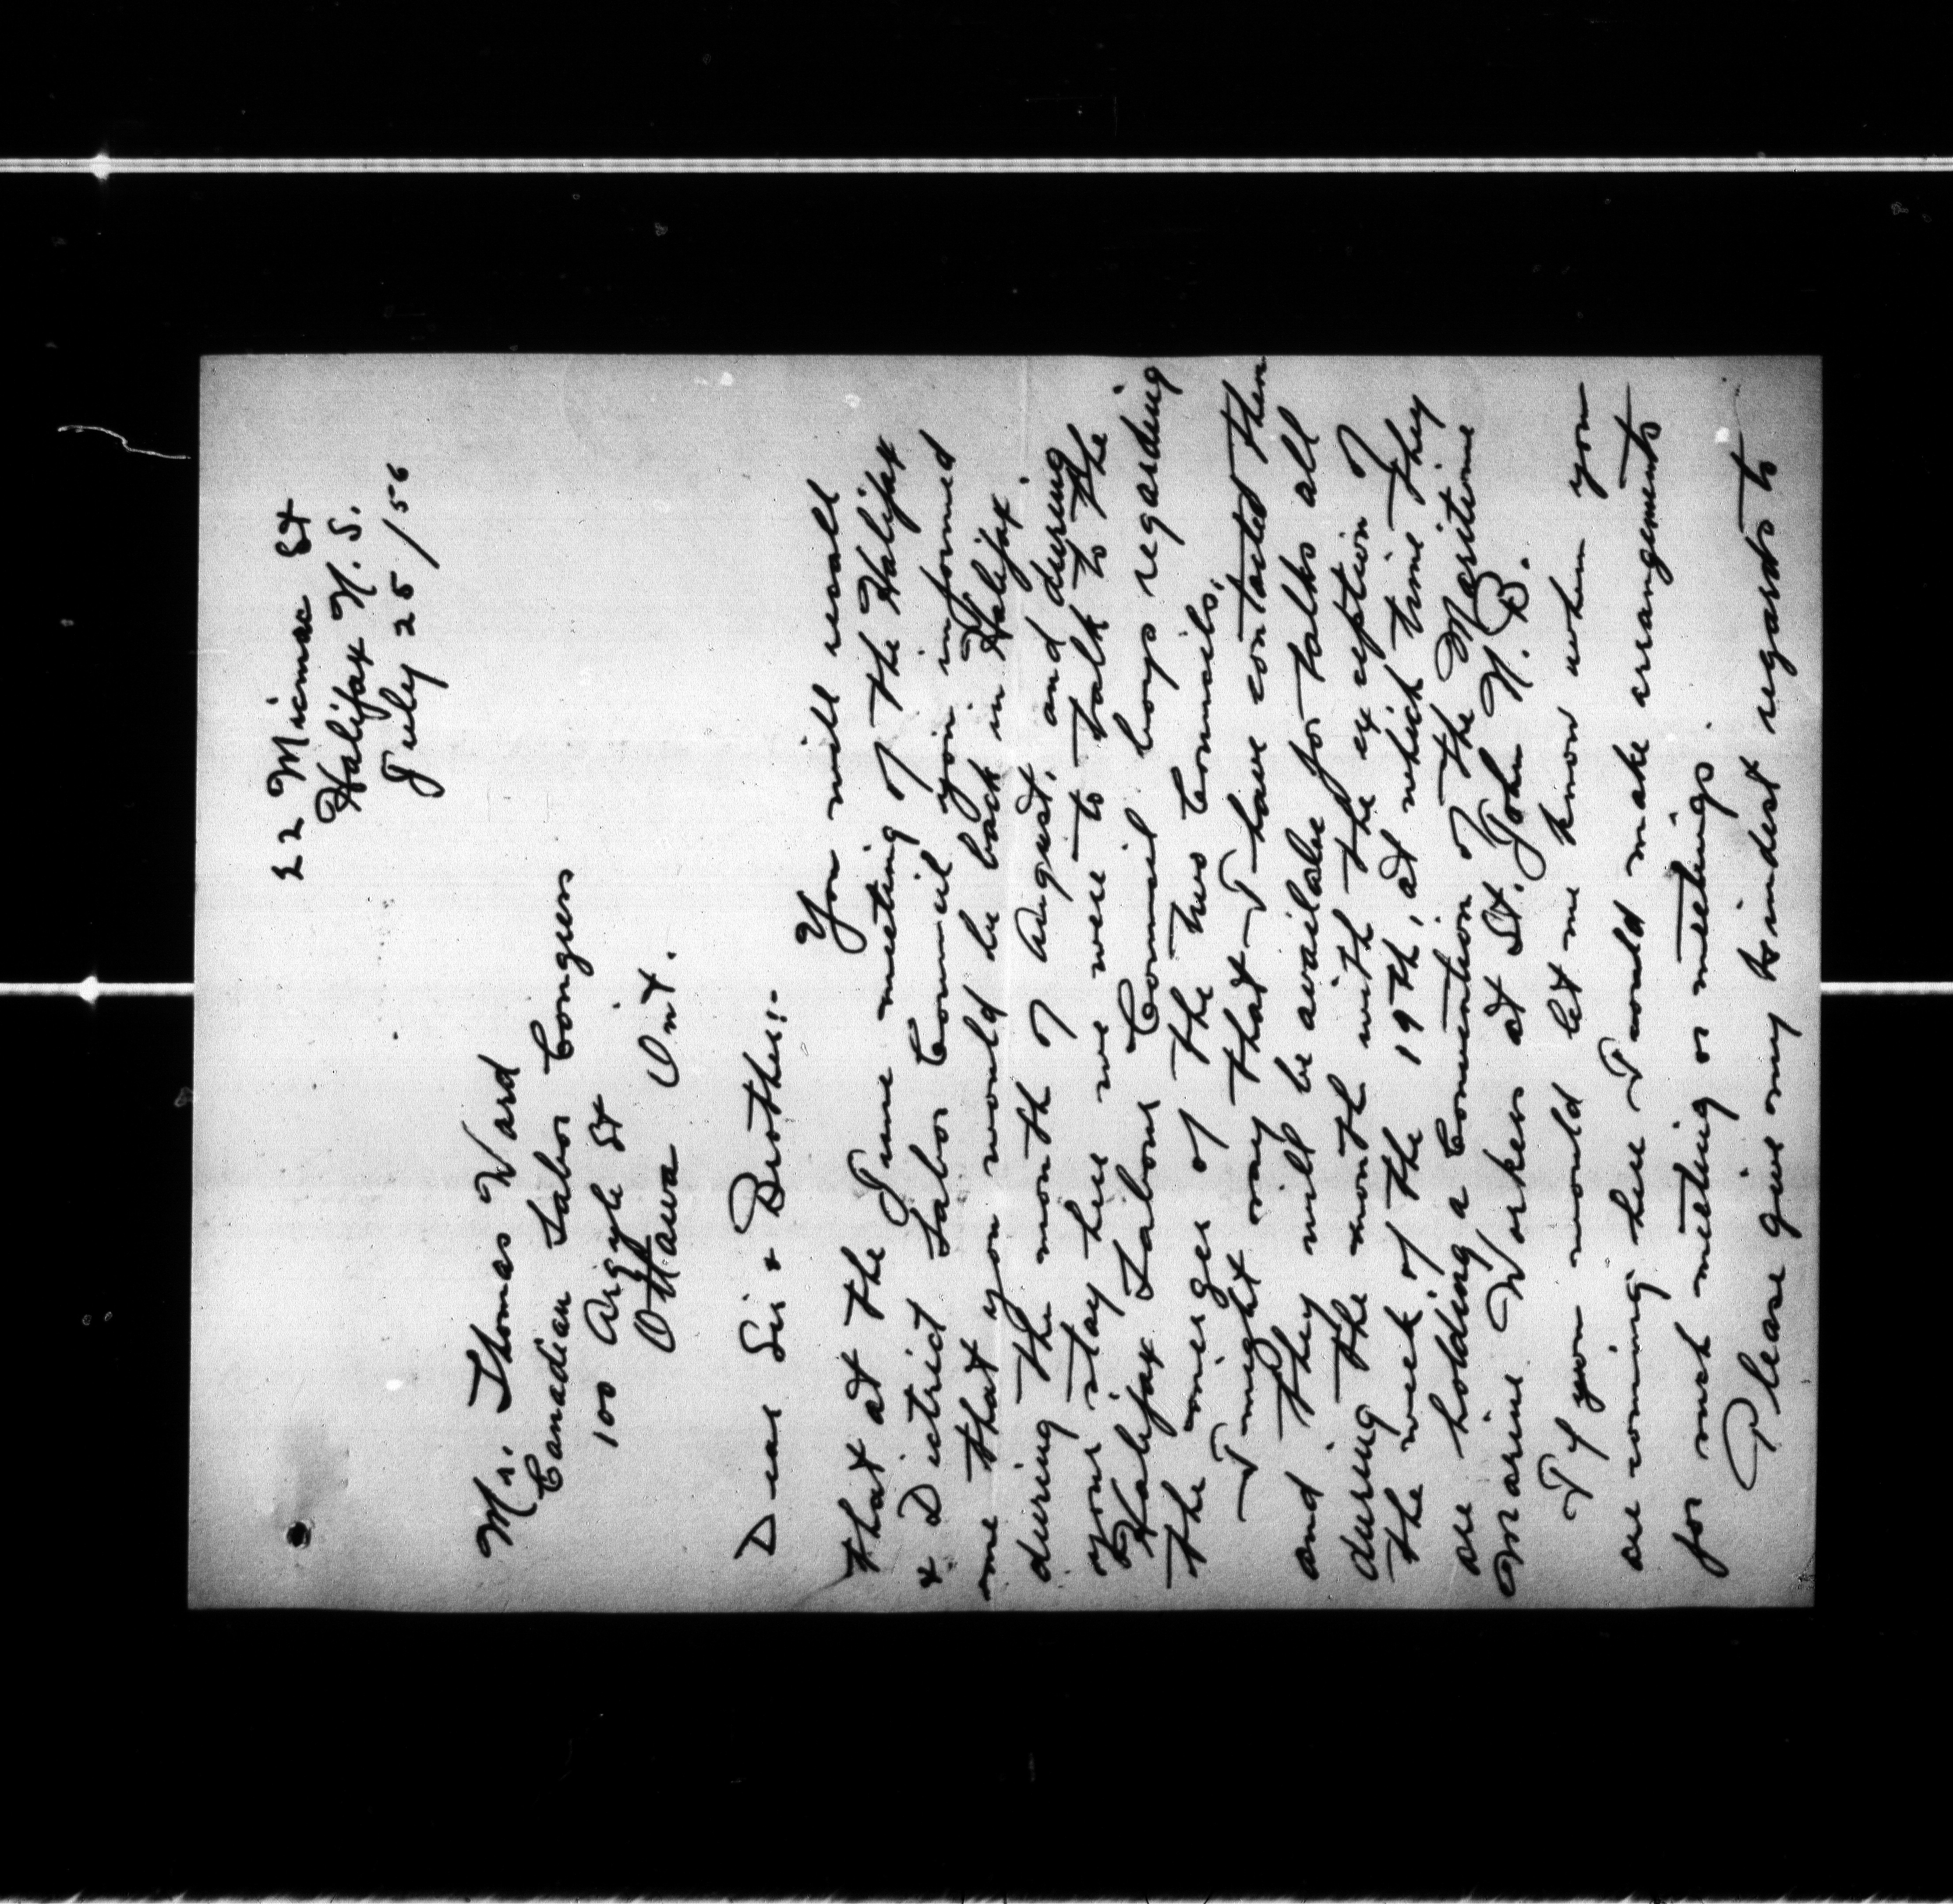 22 Micmac St
Halifax N.S.
July 25/56
Mr. Thomas Ward
Canadian Labor Congress
100 Argyle St
Ottawa Ont.
Dear Sir & Brother:-
You will recall
that at the June meeting of the Halifax
& District Labor Council you informed
me that you would be back in Halifax
during the month of August, and during
your stay here we were to talk to the
Halifax Labour Council boys regarding
the merger of the two Councils.
I might say that I have contacted them
and they will be available for talks all
during the month with the exception of
the week of the 19th, at which time they
are holding a Convention of the Maritime
Marine Workers at St. John N.B.
If you would let me know when you
are coming here I could make arrangements
for such meeting or meetings.
Please give my kindest regards to